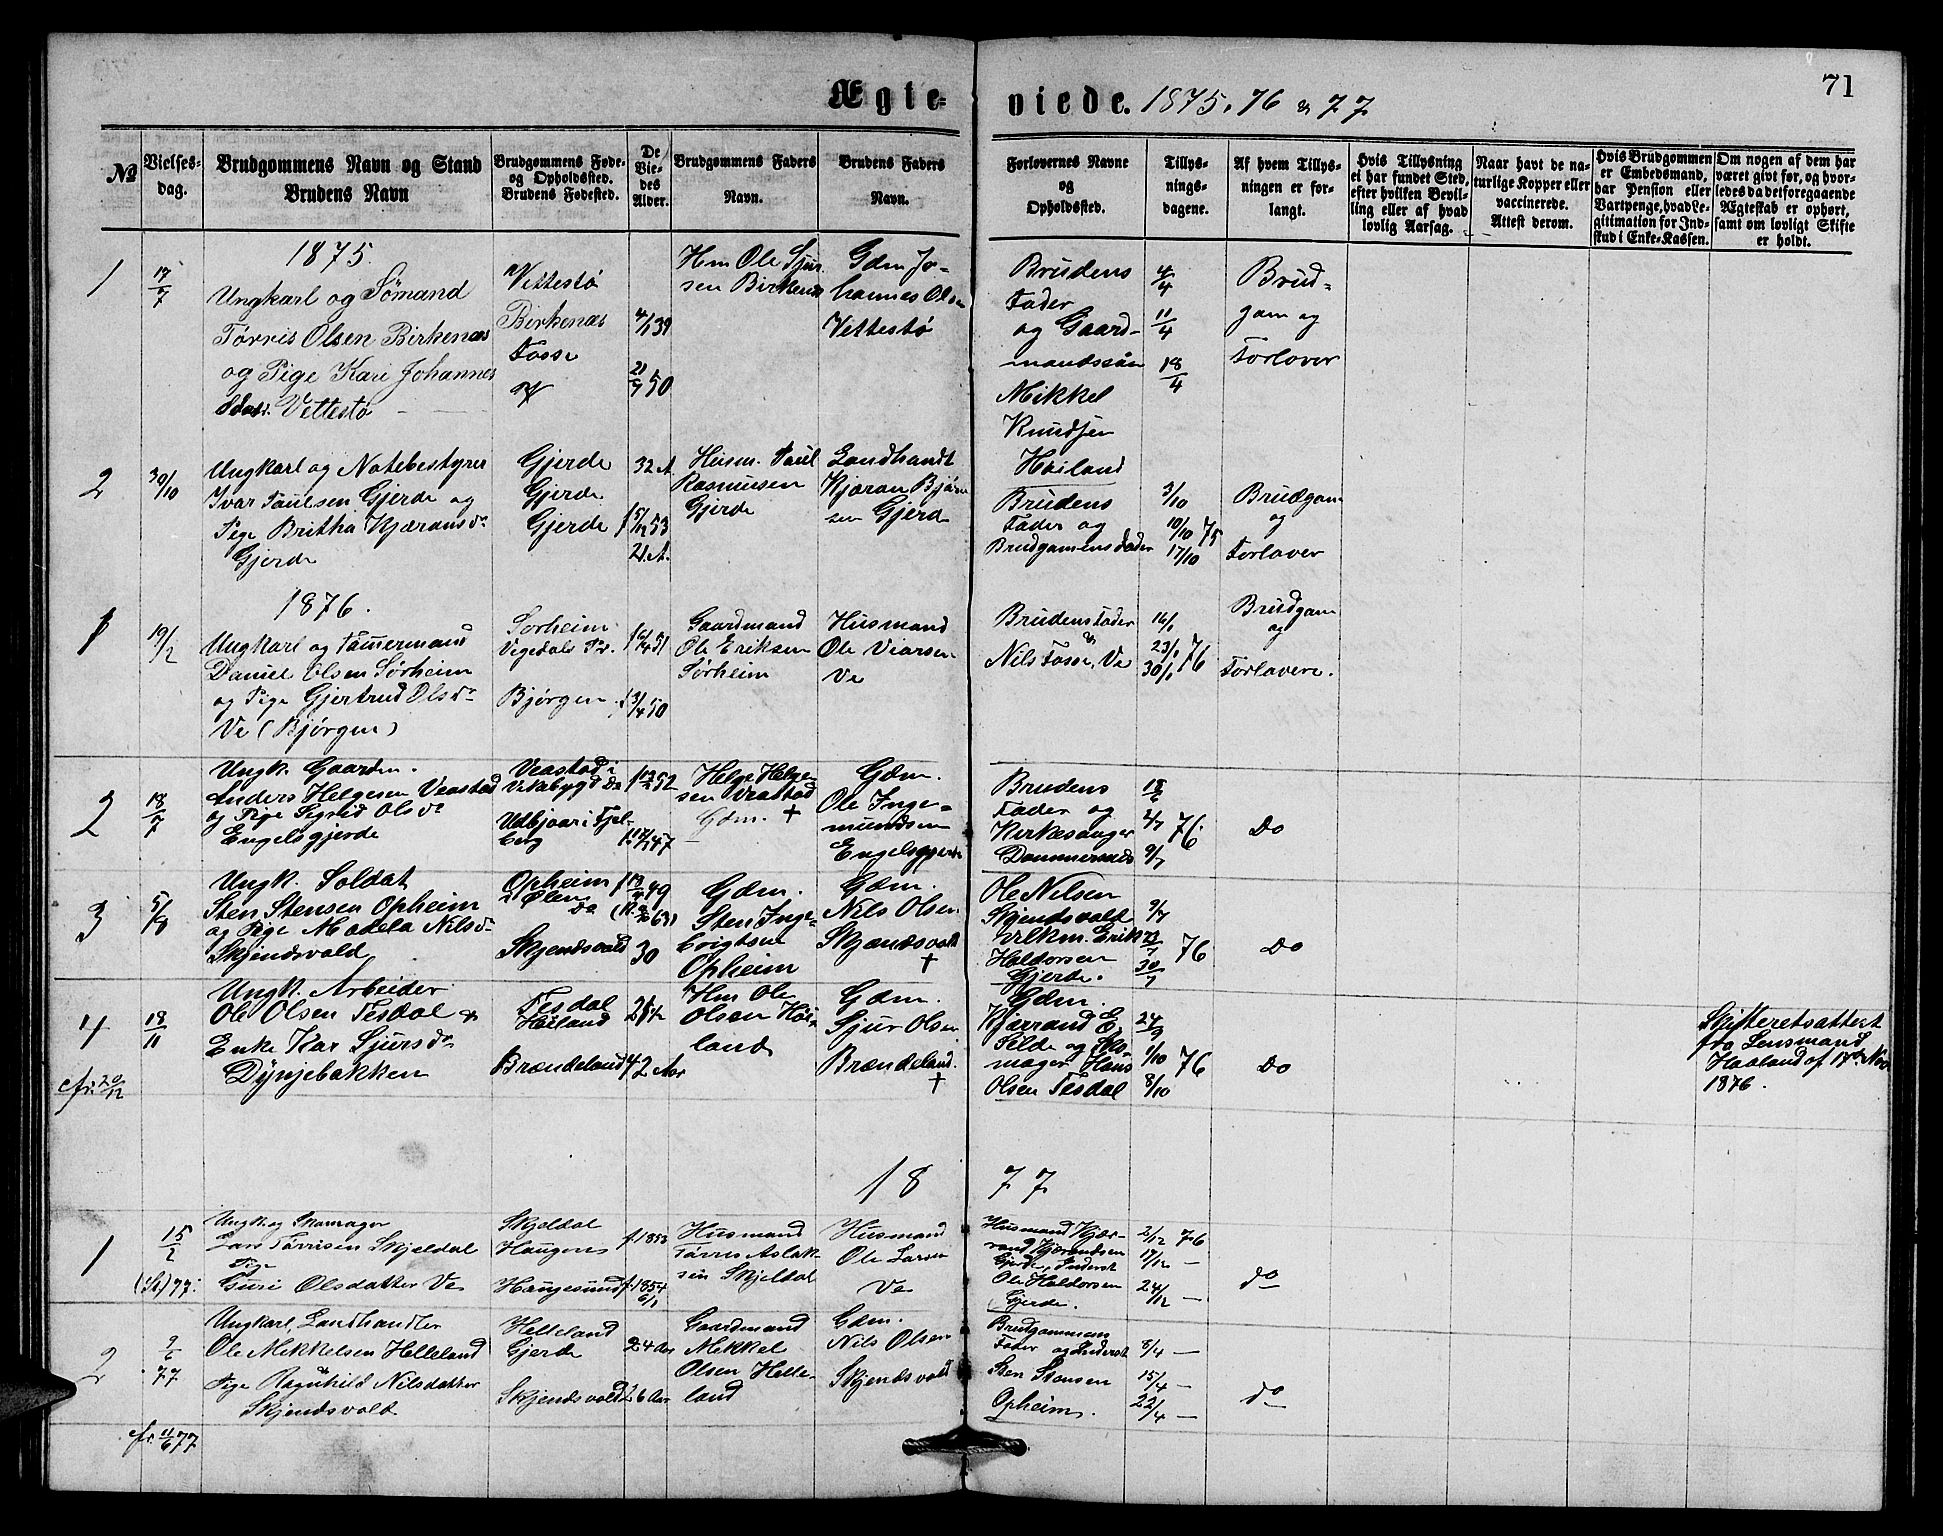 71
Ægteviede. 1875, 76 & 77
No
Vielses-
dag.
Brudgommens Navn og Stand
Brudens Navn
Brudgommens Føde-
og Opholdssted.
Brudens Fødested.
De
Vie-
des
Alder.
Brudgommens Faders
Navn.
Brudens Faders
Navn.
Forlovernes Navne
og
Opholdssted.
Tillys-
nings-
dagene.
Af hvem Tillys-
ningen er for-
langt.
Hvis Tillysning
ei har fundet Sted,
efter hvilken Bevil-
ling eller af hvad
lovlig Aarsag.
Naar havt de na-
turlige Kopper eller
vaccinerede.
Attest derom.
Hvis Brudgommen
er Embedsmand,
har Pension eller
Vartpenge, hvad Le-
gitimation for Ind-
skud i Enke-Kassen.
Om nogen af dem har
været givt før, og hvor-
ledes da det foregaaende
Ægteskab er ophørt,
samt om lovligt Skifte
er holdt.
1875.
1
Ungkarl og Sømand
Tørris Olsen Birkenæs
og Pige Kari Johannes
Vettestø
Vettestø
Birkenæs
Fosse
4/1 39
21/7 50
Hm Ole Sjur
sen Birkenæs
Gdm Jo-
hannes Olsen
Vettestø
Brudens
Fader
og Gaard-
mandssøn
Mikkel
Knudsen
Høiland
4/4
11/4
18/4
Brud-
gom og
Forlover
2
30/10
Ungkarl og Notebestyrer
Ivar Paulsen Gjerde og
Pige Britha Kjæransdr
Gjerde
Gjerde
Gjerde
Gjerde
32 A.
f 5/12 53
21 A.
Husm. Paul
Rasmussen
Gjerde
Landhandl
Kjæran Bjørn
sen Gjerde
Brudens
Fader og
Brudgomens Fader
3/10
10/10 75
17/10
Brudgom
og
Forlover
1876.
1
19/2
Ungkarl og Tømermand
Daniel Olsen Sørheim
og Pige Gjertrud Olsdr
Ve (Bjørgen)
Sørheim
Vegedals Pr.
Bjørgen
51
3/4 50
Gaardmand
Ole Eriksen
Sørheim
Husmand
Ole Viarsen
Ve
Brudens Fader
&
Nils Fosse, Ve
16/1
23/1 76
30/1
Brudgom
og
Forlovere.
2
18/7
Ungk. Gaardm.
Anders Helgesen Veastad
og Pige Sigrid Olsdr
Engelsgjerde
Veastad i
Vikabygd Do
Udbjoar i Fjel-
berg
52
47
Helge Helge-
sen Veastad
Gdm. †
Gdm.
Ole Inge-
mundsen
Engelsgjerde
Brudens
Fader og
Kirkesanger
Dommersnæs
18/6
2/7 76.
9/7
Do
3
5/9
Ungk. Soldat
Sten Stensen Opheim
og Pige Madela Nilsdr
Skjendsvold
Opheim
i Ølen
Do
Skjendsvold
49
30
Gdm.
Sten Inge-
brigtsen
Opheim
Gdm.
Nils Olsen
Skjændsvold
†
Ole Nilsen
Skjendsvold
Erik
Haldorsen
Gjerde.
9/7
23/7 76
30/7
Do
4
18/11
cfr. 20/12
Ungk. Arbeider
Ole Olsen Tesdal &
Enke Kar Sjursdr
Dynjebakken
Tesdal
Høiland
Brændeland
42 Aar
Hm Ole
Olsen Høi-
land
Gdm.
Sjur Olsen
Brændeland.
†
Gdm.
Kjærrand E.
Silde og Sko-
mager Hans
Olsen Tesdal
24/9
1/10 76
8/10
Do
Skifteretsattest
fra Lensmand
Haaland af 17de Nov
1876.
1877
1
15/2
77.
Ungk. og Skomager
Lars Tørrisen Skjeldal
Pige
Guri Olsdatter Ve
Skjeldal
Haugen
Haugesund
f. 1853
f. 1854
6/1
Husmand
Tørres Aslak-
sen Skjeldal
Husmand
Ole Larsen
Ve
Husmand Kjær-
rand Kjærandsen
Gjerde, Inderst
Ole Haldorsen
Gjerde.
2/12 76
17/12 —
24/12 —
do
2
2/6
77
cfr. 11/6 77
Ungkarl, Landhandler
Ole Mikkelsen Helleland
&
Pige Ragnhild Nilsdatter
Skjendsvold
Helleland
Gjerde
Skjendsvold
24 Aar
26 Aar
Gaardmand
Mikkel
Olsen Helle-
land
Gdm.
Nils Olsen
Skjendsvold
Brudgommens
Fader og Inderst
Sten Stensen
Opheim.
8/4 —
15/4 —
22/4 —
do